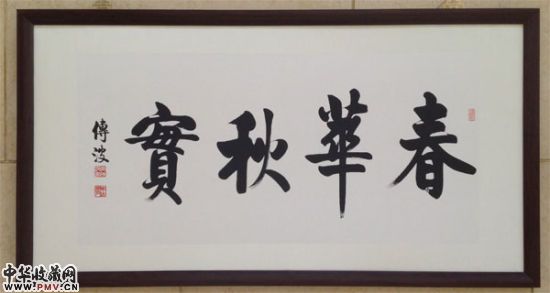 春華秋實
傳波
中华收藏网
www.PMV.cn